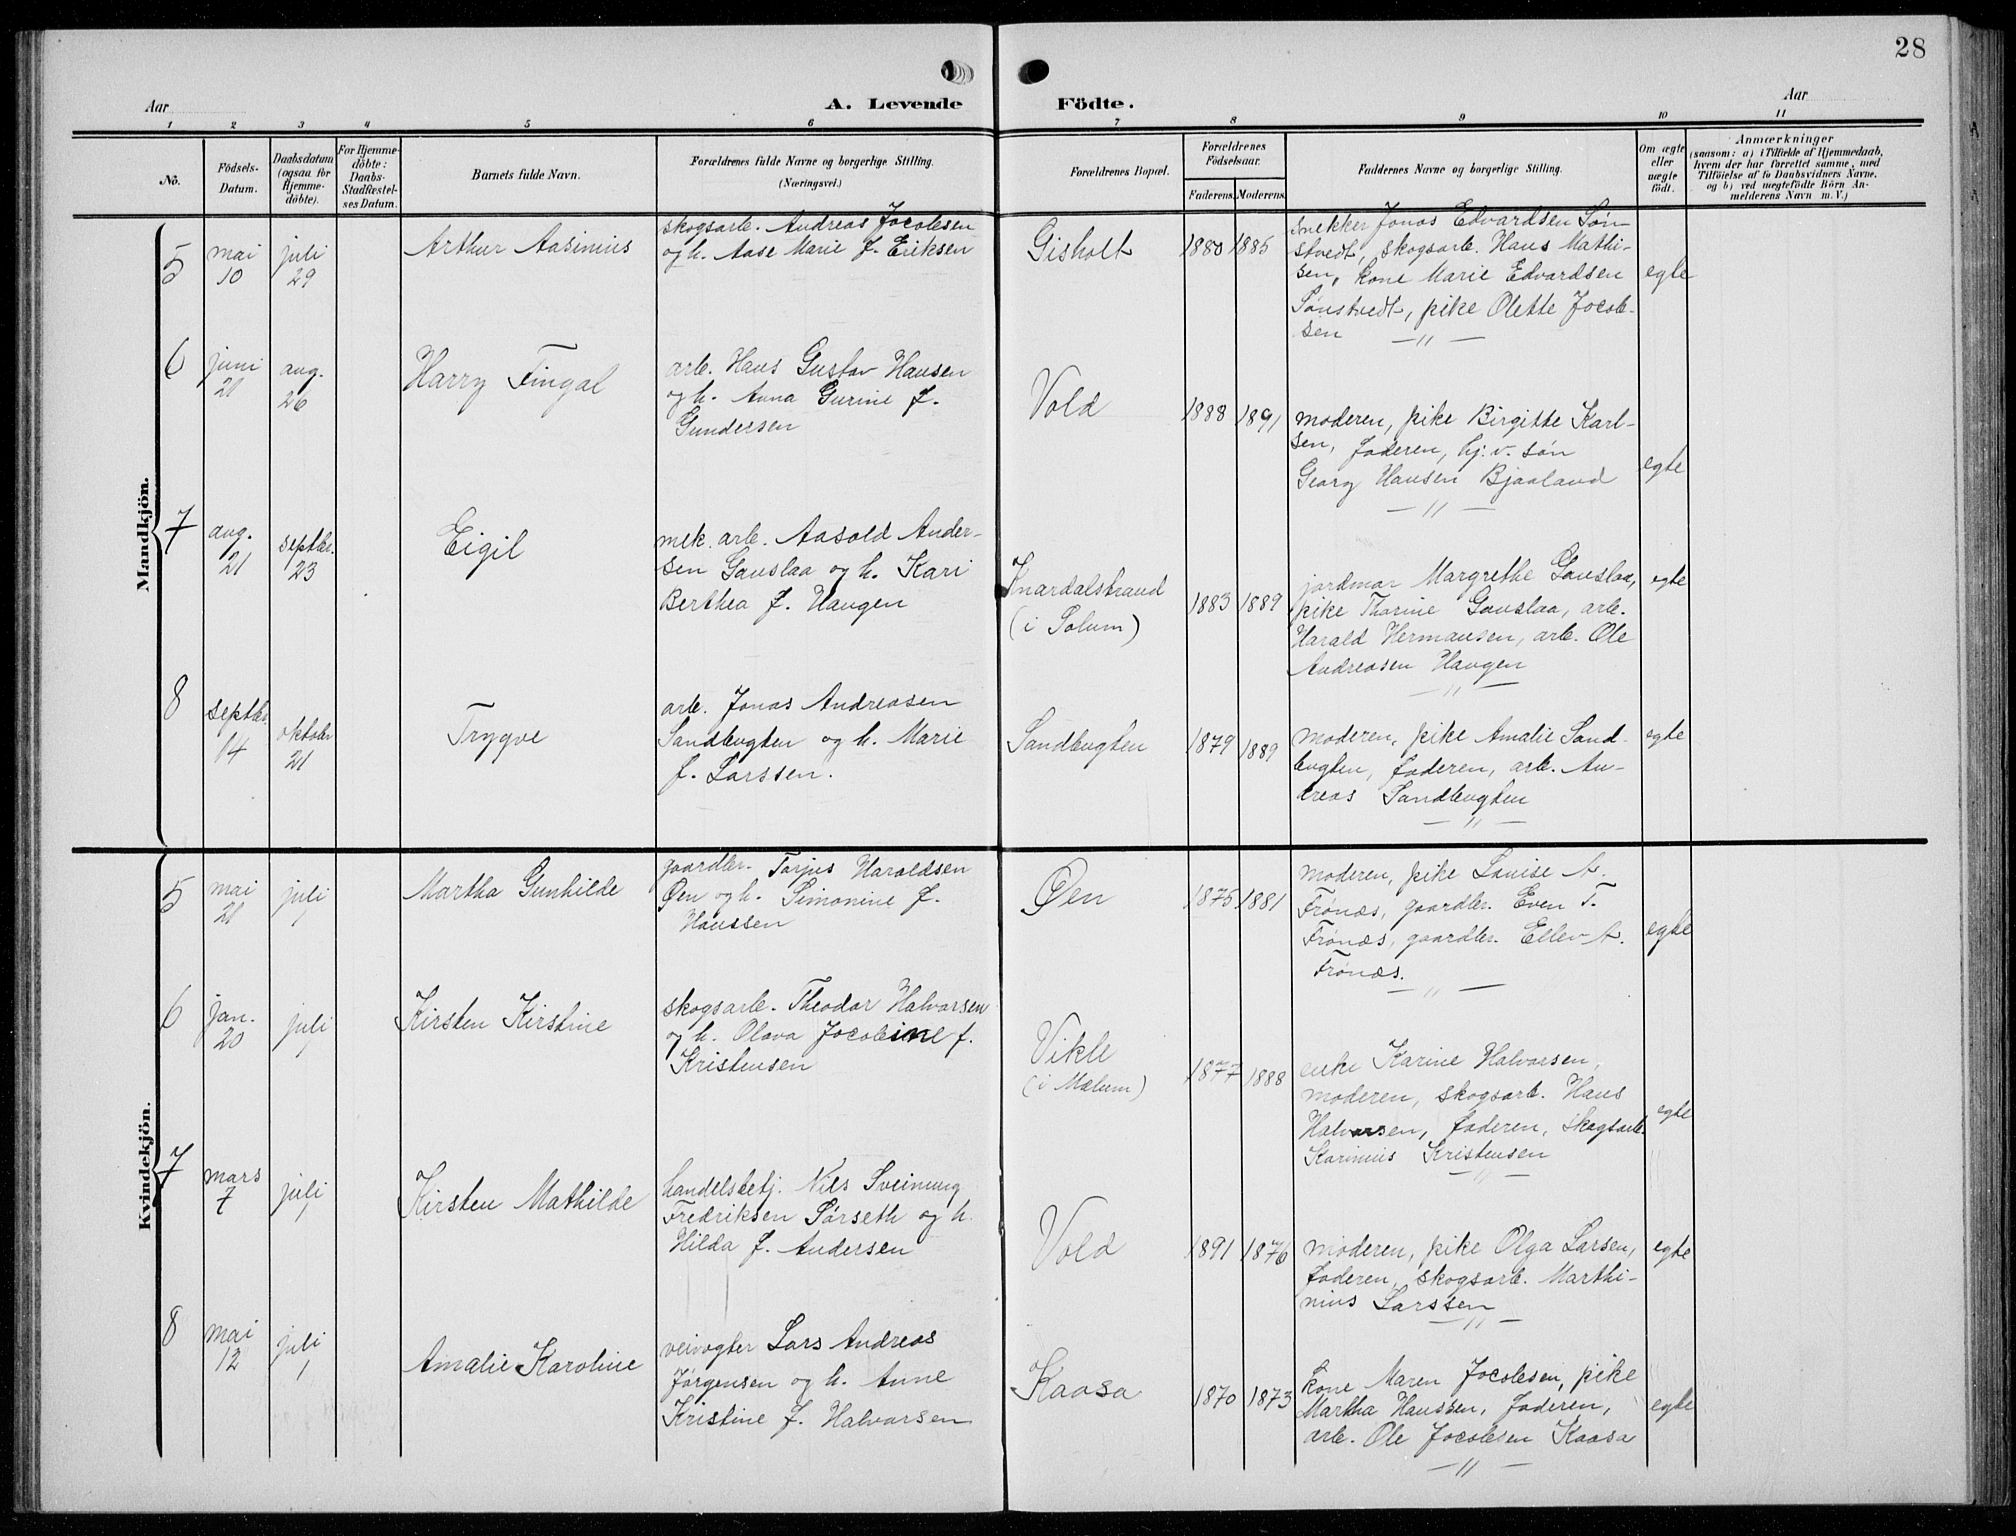 28
Aar
A. Levende
Födte.
Aar
1 2 3 4 5 6 7 8 9 10 11
No.
Födsels-
Datum.
Daabsdatum
(ogsaa for
Hjemme-
döbte).
For Hjemme-
döbte:
Daabs-
Stadfæstel-
ses Datum.
Barnets fulde Navn.
Forældrenes fulde Navne og borgerlige Stilling.
(Næringsvei.)
Forældrenes Bopæl.
Forældrenes
Födselsaar.
Faderens.
Moderens.
Faddernes Navne og borgerlige Stilling.
Om ægte
eller
uægte
födt.
Anmærkninger
(saasom: a) i Tilfælde af Hjemmedaab,
hvem der har forrettet samme, med
Tilföielse af to Daabsvidners Navne,
og b) ved uægtefödte Börn An-
melderens Navn m. V.)
Mandkjön.
5
mai
10
juli
29
Arthur Aasinius
skogsarb. Andreas Jacobsen
og h. Aase Marie f. Eriksen
Gisholt
1880
1885
snekker Jonas Edvardsen Søn-
stvedt, skogsarb. Hans Mathi-
sen, kone Marie Edvardsen
Sønstvedt, pike Olette Jacob-
sen
egte
6
juni
21
aug.
26
Harry Fingal
arb. Hans Gustav Hansen
og h. Anna Gurine f.
Gundersen
Vold
1888
1891
moderen, pike Birgitte Karl-
sen, faderen, hj. v. søn
Georg Hansen Bjaaland
egte
7
aug.
21
septbr.
23
Eigil
mek. arb. Aasold Ander-
sen Gauslaa og h. Kari
Berthea f. Haugen
Knardalstrand
(i Solum)
1883
1889
jordmor Margrethe Gauslaa,
pike Thorine Gauslaa, arb.
Harald Hermansen, arb. Ole
Andreasen Haugen
egte
8
septbr
14
oktober
21
Trygve
arb. Jonas Andreasen
Sandbugten og h. Marie
f. Larssen.
Sandbugten
1879
1889
moderen, pike Amalie Sand-
bugten, faderen, arb. An-
dreas Sandbugten
egte
Kvindekjön.
5
mai
21
juli
1
Martha Gunhilde
gaardbr. Torjus Haraldsen
Øen og h. Simonine f.
Hanssen
Øen
1875
1881
moderen, pike Louise A.
Frønæs, gaardbr. Even T.
Frønæs, gaardbr. Ellev A.
Frønæs.
egte
6
jan.
20
juli
1
Kirsten Kirstine
skogsarb. Theodor Halvorsen
og h. Olava Jacobine f.
Kristensen
Vikle
(i Mælum)
1877
1888
enke Karine Halvorsen,
moderen, skogsarb. Hans
Halvorsen, faderen, skogsarb.
Karinius Kristensen
egte
7
mars
7
juli
1
Kirsten Mathilde
handelsbetj. Nils Sveinung
Fredriksen Sørseth og h.
Hilda f. Andersen
Vold
1891
1876
moderen, pike Olga Larsen,
faderen, skogsarb. Marthi-
nius Larssen
egte
8
mai
12
juli
1
Amalie Karoline
veivogter Lars Andreas
Jørgensen og h. Anne
Kristine f. Halvorsen
Kaasa
1870
1873
kone Maren Jacobsen, pike
Martha Hanssen, faderen,
arb. Ole Jacobsen Kaasa
egte